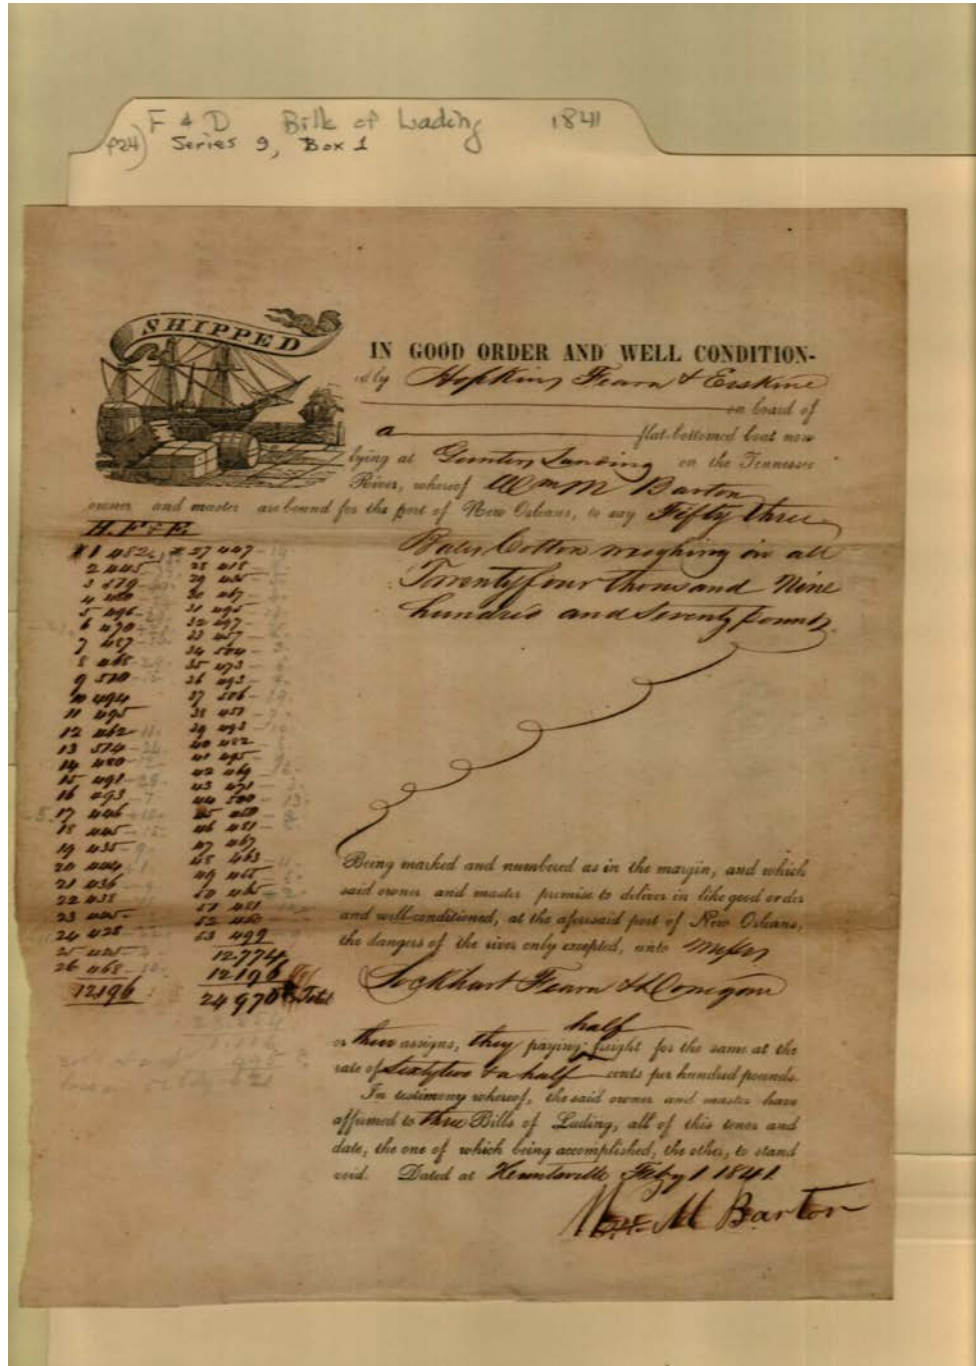 F & D Bills of Lading 1841
p24) Series 9, Box 1
SHIPPED
IN GOOD ORDER AND WELL CONDITION-
ed by Hopkins Fearn & Erskine
on board of
a flat-bottomed boat now
lying at Gunters Landing on the Tennessee
River, whereof Wm M Barton
owner and master are bound for the port of New Orleans, to say Fifty three
H. F & E.
Bales Cotton weighing in all
Twenty four thousand Nine
hundred and Seventy pounds.
# 1 482 # 27 447
2 445 28 418
3 579 29
4 30 467
5 496 31 495
6 470 32 497
7 487 33 457
8 468 34 504
9 510 35 473
10 494 36 493
11 495 37 506
12 462 38 451
13 514 39 493
14 480 40 482
15 491 41 495
16 493 42 469
17 446 43 471
18 445 44 500
19 435 45
20 444 46 481
21 436 47 467
22 438 48 463
23 425 49 455
24 428 50 465
25 425 51 481
26 468 52 460
53 499
12,774
12196
12196
24970 Total
Being marked and numbered as in the margin, and which
said owner and master promise to deliver in like good order
and well-conditioned, at the aforesaid port of New Orleans,
the dangers of the river only excepted, unto Messrs
Lockhart Fearn & Donegan
half
or their assigns, they paying freight for the same at the
rate of Sixty two & a half cents per hundred pounds.
In testimony whereof, the said owner and master have
affirmed to three Bills of Lading, all of this tenor and
date, the one of which being accomplished, the other, to stand
void. Dated at Huntsville Feby 1 1841
Wm M Barton